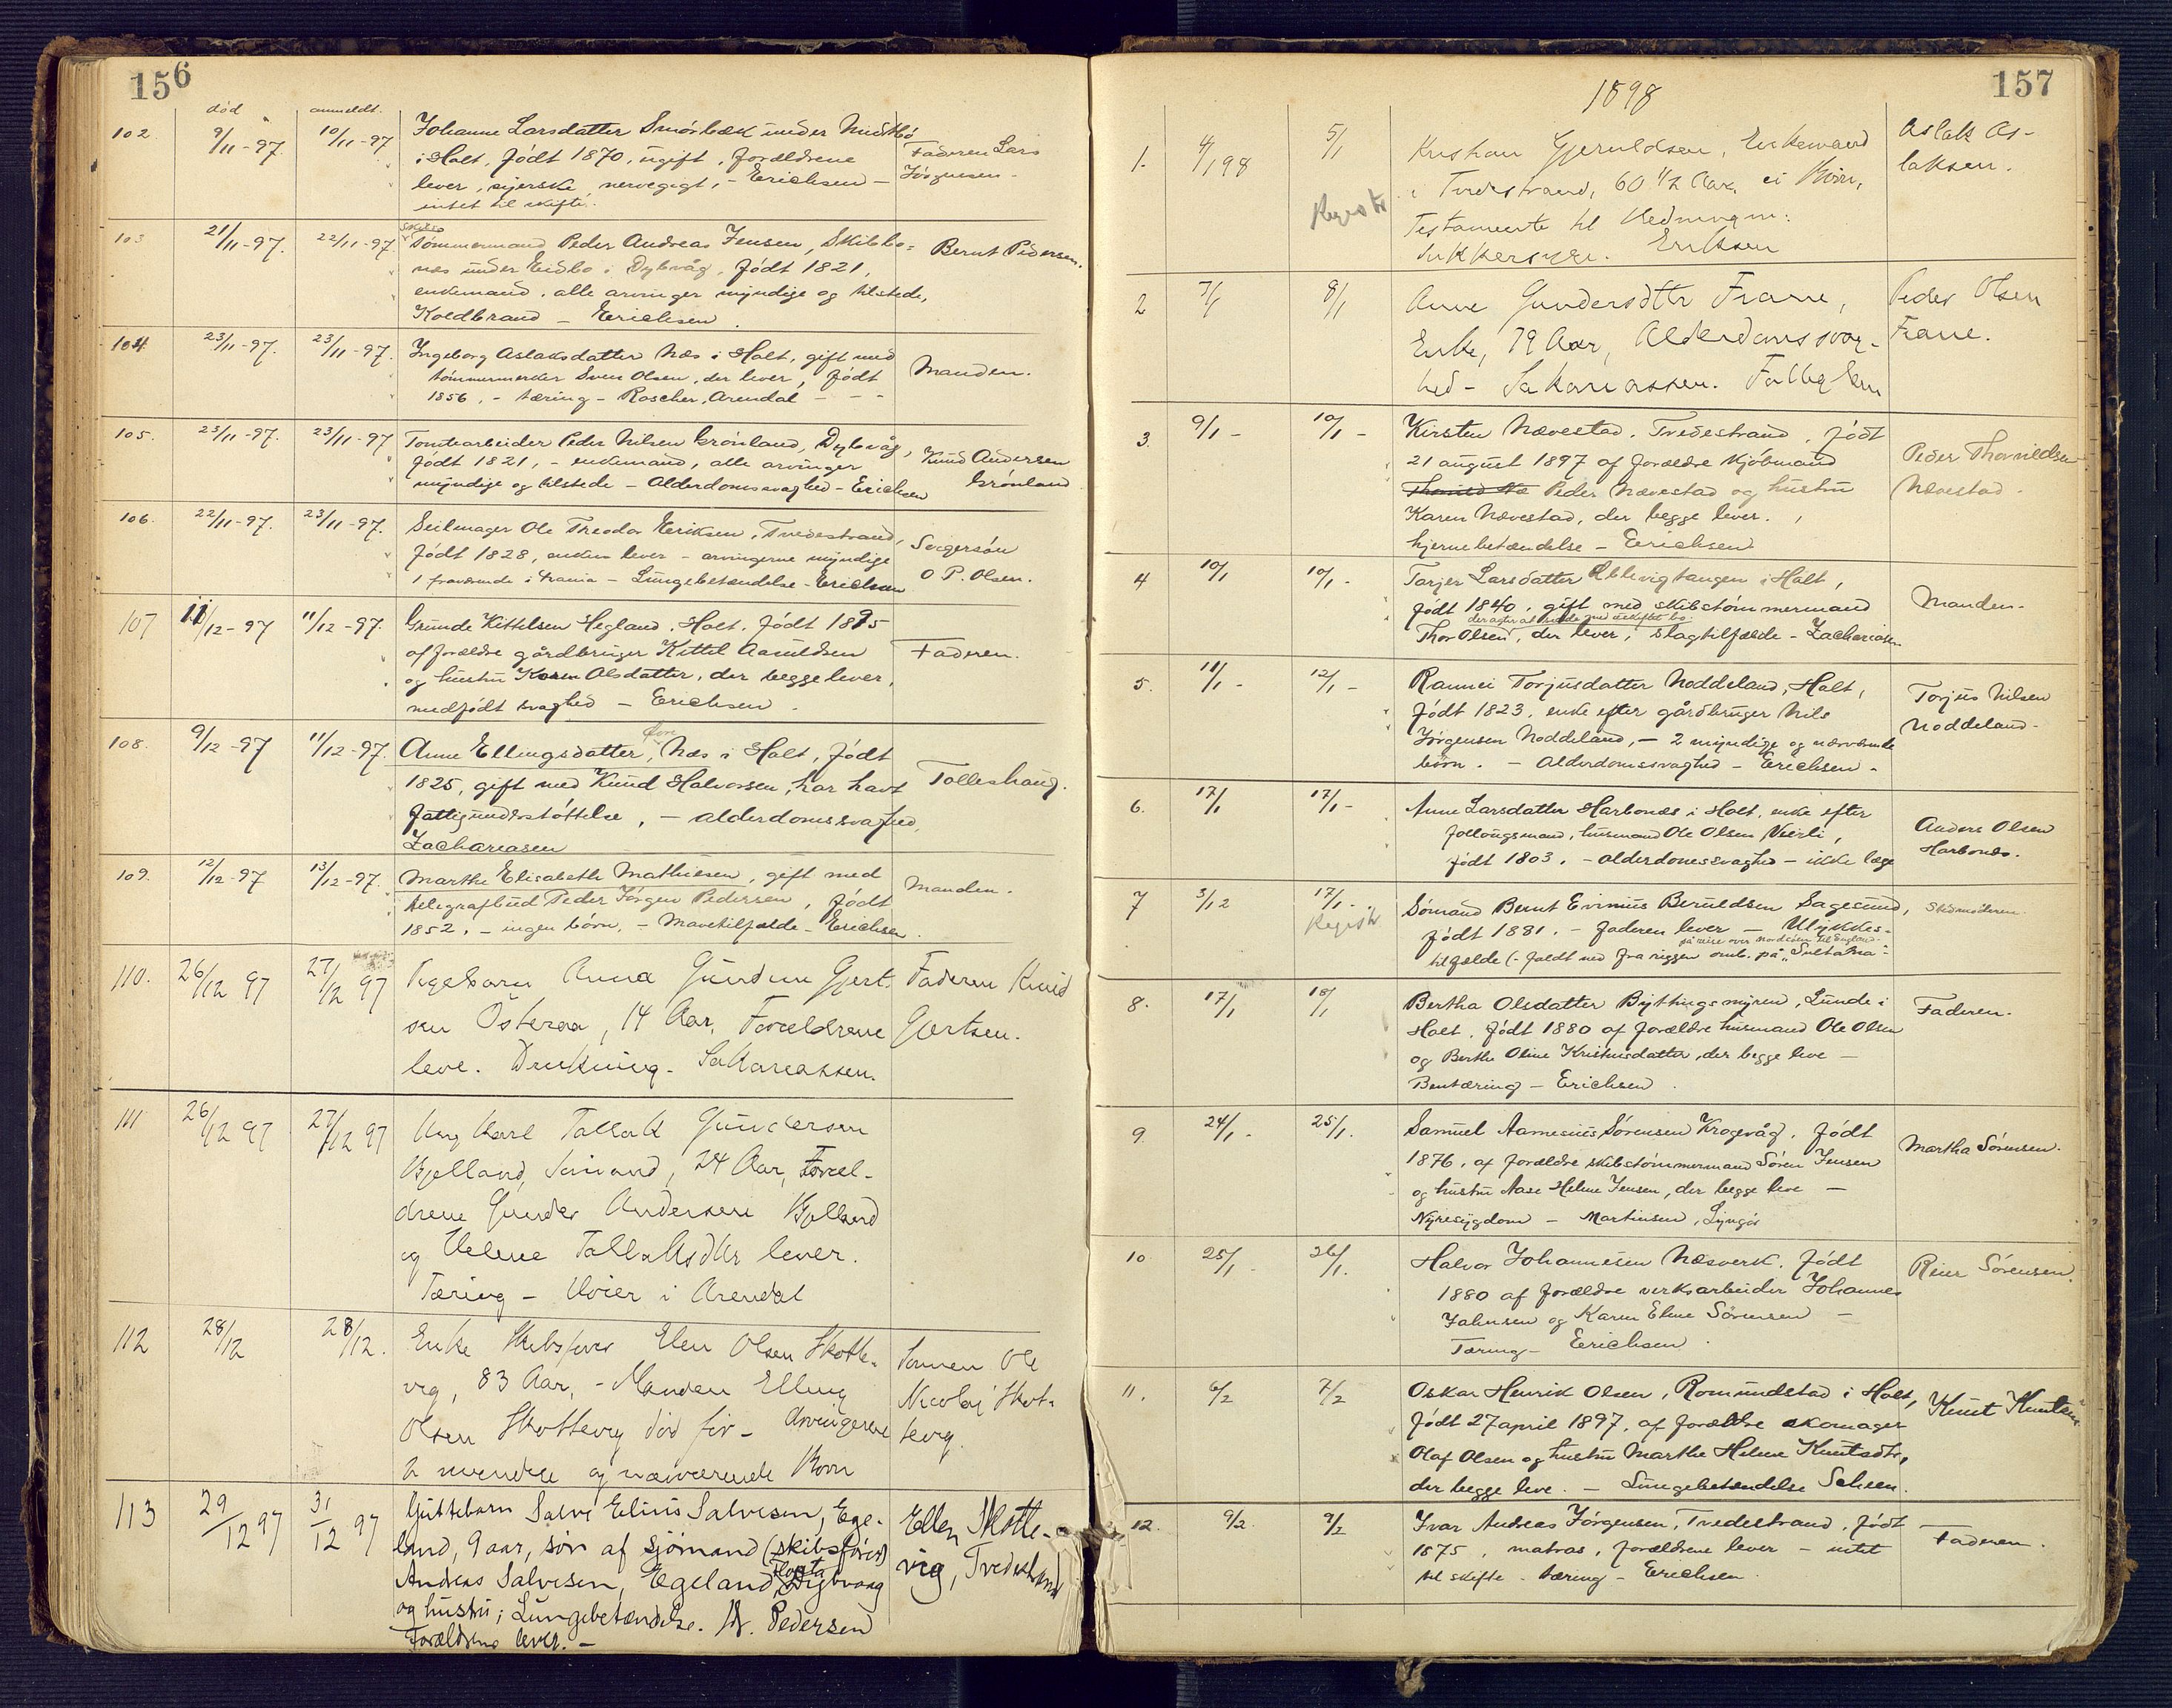 156
død anmeldt.
102. 9/11-97. 10/11-97 Johanne Larsdatter Smörbæk under Midtbö
i Holt, födt 1870, ugift, forældrene Faderen Lars
lever, syerske, nervegigt, - Erichsen - Jörgensen -
intet til skifte.
103 21/11-97. 22/11-97. skibs Tömmermand Peder Andreas Jensen, Skibbo= Bernt Pedersen.
næs under Eidbo i Dybvåg, födt 1821,
enkemand, alle arvinger myndige og tilstede,
Koldbrand - Erichsen
104. 23/11-97. 23/11-97. Ingeborg Aslaksdatter Næs i Holt, gift med Manden.
tömmermerker Sven Olsen, der lever, födt
1856, - tæring - Roscher, Arendal - - -
105. 23/11-97. 23/11-97 Tomtearbeider Peder Nilsen Grönland, Dybvåg, Knud Andersen
födt 1821, - enkemand, alle arvinger Grönland
myndige og tilstede - Alderdomssvaghed - Erichsen
106. 22/11-97. 23/11-97. Seilmager Ole Theodor Eriksen, Tvedestrand, Svigersön
födt 1828, enken lever - arvingerne myndige O P. Olsen.
1 fraværende i - Lungebetændelse - Erichsen
107 11/12-97 11/12-97. Gunde Kittelsen Hegland, Holt, födt 1895 Faderen.
af forældre gårdbruger Kittil Aanuldsen
og hustru Karen Olsdatter, der begge lever,
medfödt svaghed - Erichsen.
108. 9/12-97 11/12-97. Anne Ellingsdatter, Næs i Holt, födt Tolleshaug.
1825, gift med Knud Halvorsen, har havt
fattigunderstöttelse, - alderdomssvaghed,
Zachariasen
109. 12/12-97 13/12-97. Marthe Elisabeth Mathiesen, gift med Manden.
telegrafbud Peder Jörgen Pedersen, födt
1852, - ingen börn, - Mavetilfælde - Erichsen.
110. 26/12 97 27/12 97 Pigebarn Anna Gundine Gjert- Faderen Knud
sen Österaa, 14 Aar, Forældrene Gjertsen.
leve. Drukning - Sakariassen.
111 26/12 97 27/12 97 Ung Karl Tallak Gundersen
Gjelland, Sömand, 24 Aar, Foræl-
drene Gunder Andersen Gjelland
og Helene Tallaksdtr lever.
Tæring - Höier i Arendal
112 28/12 28/12. Enke Skibsförer Elen Olsen Skotte- Sönnen Ole
vig, 83 Aar, - Manden Elling Nicolaj Skot-
Olsen Skottevig död för - Arvingerne tevig.
2 myndige og nærværende Börn
113 29/12 97 31/12 97 Guttebarn Salve Elius Salvesen, Ege- Ellen Skotte-
land, 9 aar, sön af sjömand (skibsförer) vig, Tvedestrand
Andreas Salvesen, Egeland, Flosta Dybvaag
og hustru; Lungebetændelse. Dr. Pedersen
Forældrene lever. -
157
1898
1. 4/1 98 5/1 Kristian Gjeruldsen, Enkemand Aslak As-
Registr i Tvedestrand, 60 1/2 Aar, ei Börn, laksen.
Testamente til
Sukkersyge. Eriksen
2 7/1 8/1 Anne Gundersdtr Frane, Peder Olsen
Enke, 79 Aar, Alderdomssvag- Frane.
hed - Sakariassen. Fattiglem
3. 9/1 - 10/1 - Kirsten Nævestad, Tvedestrand, födt Peder Thorvildsen
21 august 1897 af forældre kjöbmand Nævestad.
Peder Nævestad og hustru
Karen Nævestad, der begge lever.
hjernebetændelse - Erichsen
4 10/1 10/1 - Torjer Larsdatter Ablevigtangen i Holt, Manden.
födt 1840, gift med skibstömmermand
der agter at sidde med uskiftet bo.
Thor Olsen, der lever, slagtilfælde - Zachariasen
5. 11/1 - 12/1 - Rannei Torjusdatter Noddeland, Holt, Torjus Nilsen
födt 1823, enke efter gårdbruger Nils Noddeland -
Jörgensen Noddeland, - 2 myndige og nærværende
börn. - Alderdomssvaghed - Erichsen -
6. 17/1 17/1 - Anne Larsdatter Harbonæs i Holt, enke efter Anders Olsen
follougsmand, husmand Ole Olsen Harbonæs.
födt 1803. - alderdomssvaghed - ikke læge
7 3/12 17/1 - Sömand Bernt Evinius Beruldsen Sagesund, Stedmoderen.
Registr födt 1881. - faderen lever - Ulykkes-
på reise over nordsöen til England
tilfælde (- faldt ned fra riggen omb. på "Sultana" -
8. 17/1 18/1 Bertha Olsdatter Bythingsmyren, Lunde i Faderen.
Holt, födt 1880 af forældre husmand Ole Olsen
og Berthe Oline Kristensdatter, der begge leve -
Bentæring - Erichsen
9 24/1 - 25/1. Samuel Aamenius Sörensen Krogvåg, födt Martha Sörensen.
1876, af forældre skibstömmermand Sören Jensen
og hustru Aase Helene Jensen, der begge leve -
Nyresygdom - Martinsen, Lyngör
10 25/1 - 26/1. Halvor Johannesen Næsverk, födt Reier Sörensen.
1880 af forældre verksarbeider Johannes
Jahnsen og Karen Eline Sörensen -
Tæring - Erichsen
11. 6/2 7/2 Oskar Henrik Olsen, Romundstad i Holt, Knut Knutsen
födt 27 april 1897, af forældre skomager
Olaf Olsen og hustru Marthe Helene Knutsdtr,
der begge leve. - Lungebetændelse Scheen.
12. 9/2. 9/2 Ivar Andreas Jörgensen, Tvedestrand, födt Faderen.
1875, matros, forældrene lever - intet
til skifte - tæring - Erichsen